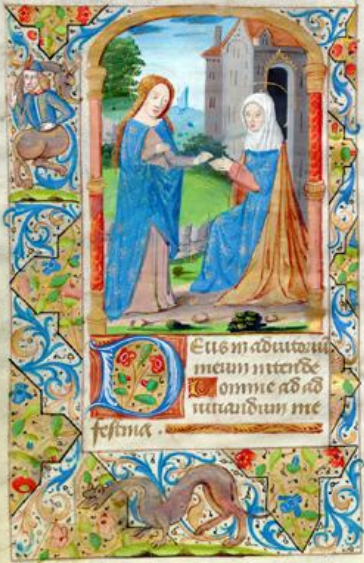 Deus in adiutoriu
meum intende
Domine ad ad
iuuandum me
festina.